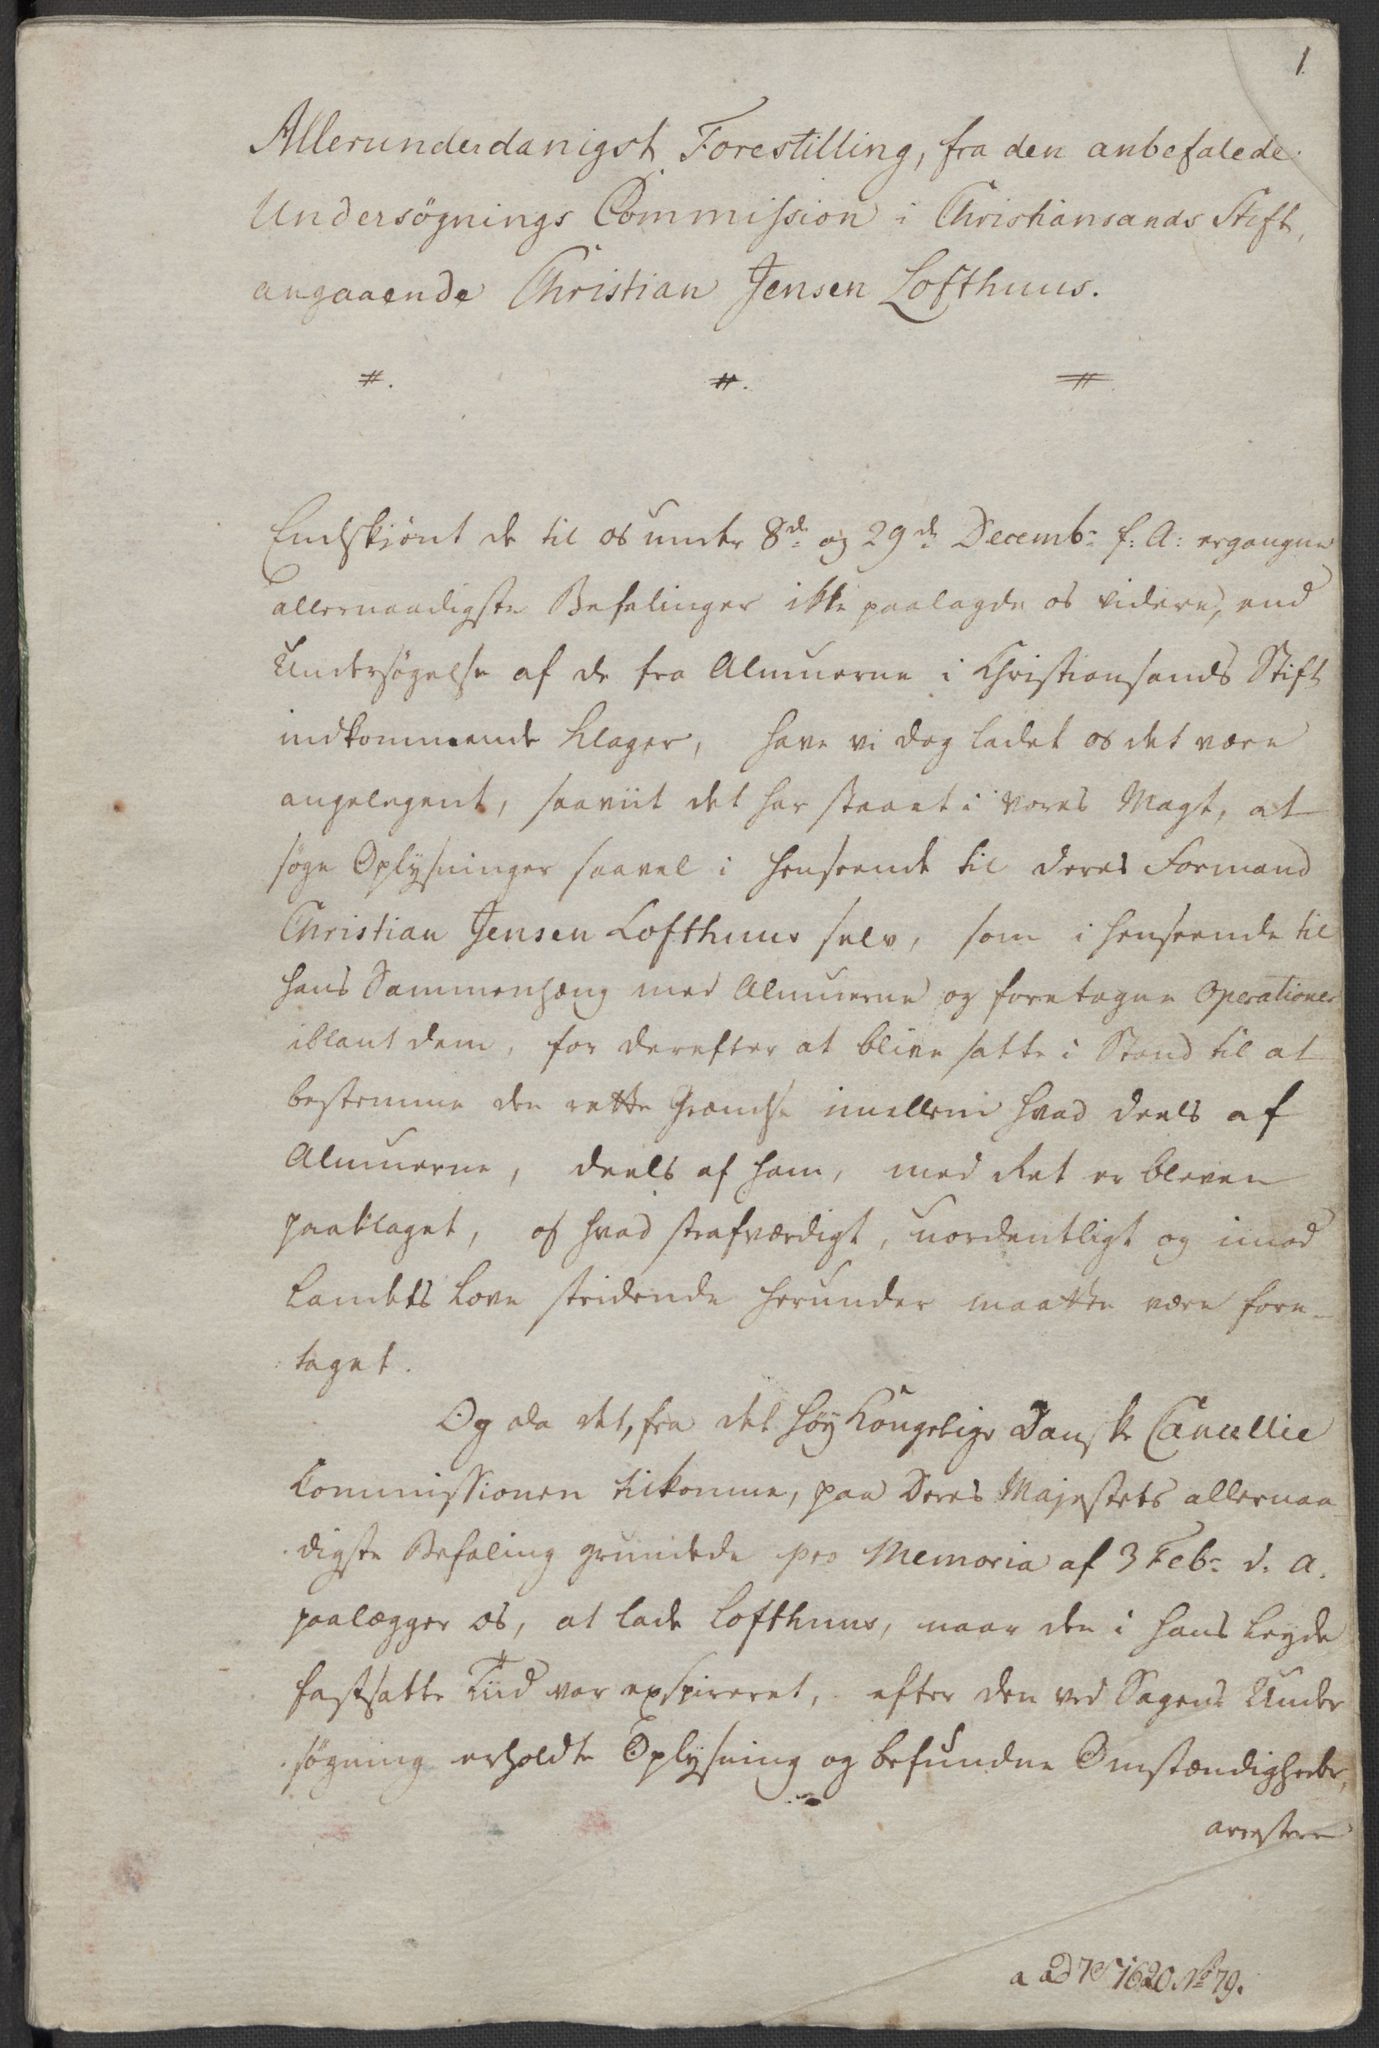 1.
Allerunderdanigst Forestilling, fra den anbefalede
Undersøgnings Commission i Christiansands Stift,
angaaende Christian Jensen Lofthuus.
Endskiønt de til os under 8de og 29de Decembr f: A: ergangne
allernaadigste Befalinger ikke paalagde os videre, end
Undersøgelse af de fra Almuerne i Christiansands Stift
indkommende Klager, have vi dog ladet os det være
angelegent, saaviit det har staaet i vores Magt, at
søge Oplysninger saavel i Henseende til deres Formand
Christian Jensen Lofthuus selv, som i Henseende til
hans Sammenhæng med Almuerne og foretagne Operationer
iblant dem, for derefter at blive satte i Stand til at
bestemme den rette Grændse imellem hvad deels af
Almuerne, deels af ham, med Ret er bleven
paaklaget, og hvad strafværdigt, uordentligt og imod
Landets Love stridende herunder maatte være fore-
taget.
Og da det, fra det høy Kongelige Danske Cancellie
Commissionen tilkomne, paa Deres Majestets allernaa
digste Befaling grundede pro Memoria af 3 Febr d. A.
paalægger os, at lade Lofthuus, naar den i hans Leyde
fastsatte Tiid var exspireret, efter den ved Sagens Under
søgning erholdte Oplysning og befundne Omstændigheder,
arrestere
1620 No 79.